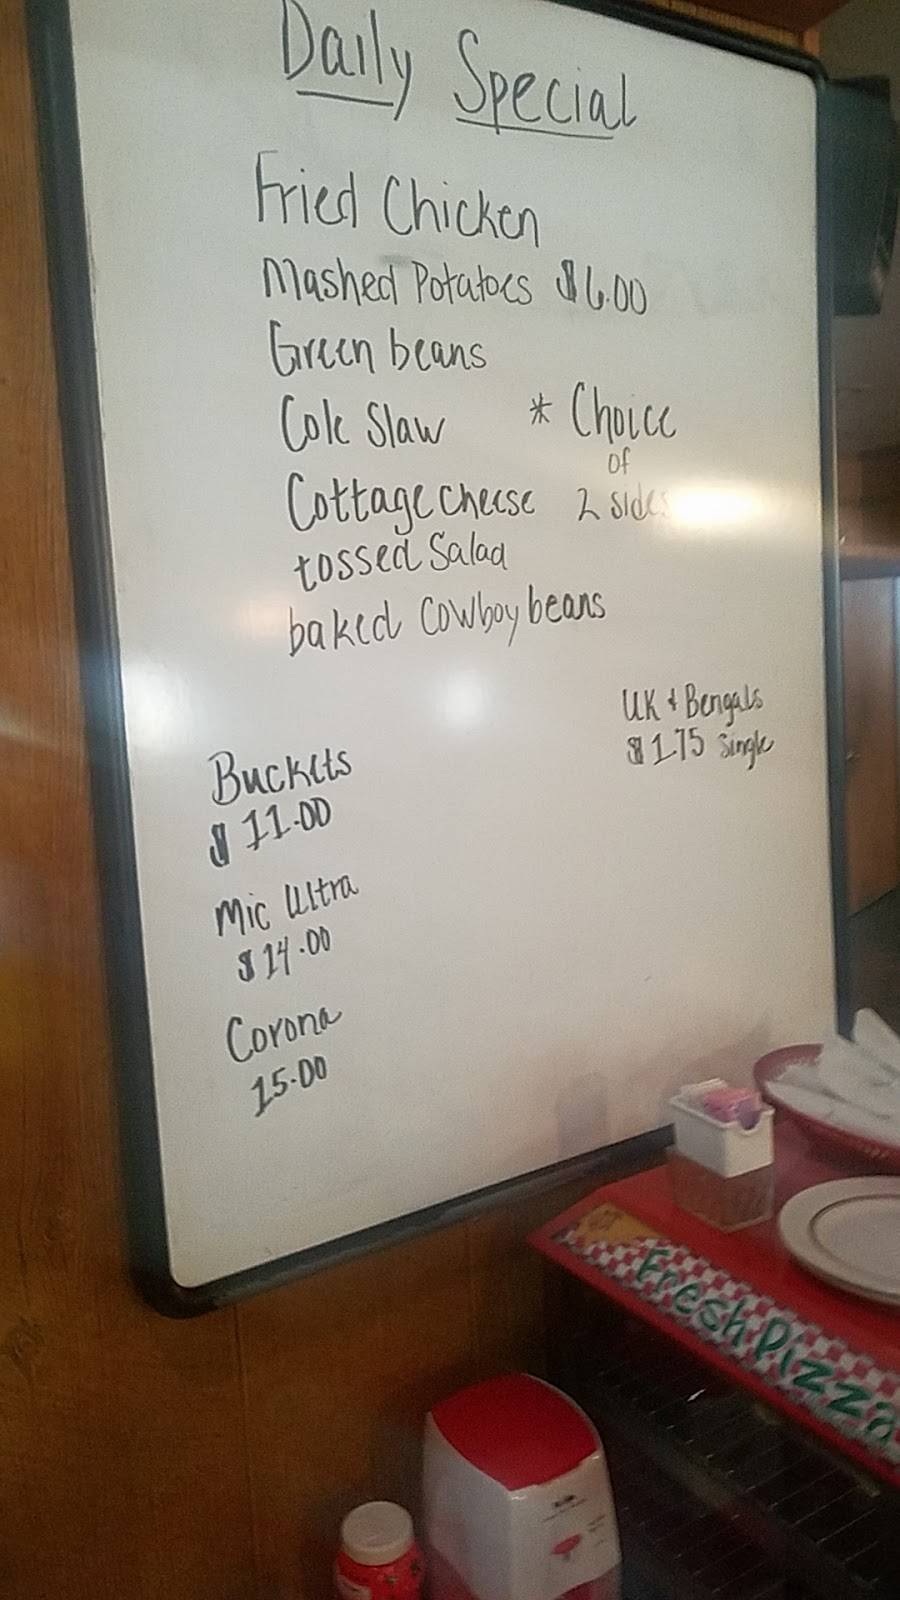 Daily Special
Fried Chicken
Mashed Potatoes $6.00
Green beans
Cole Slaw
* Choice
of
2 sides
Cottage cheese
tossed Salad
baked Cowboy beans
UK & Bengals
$1.75 single
Buckets
$11.00
Mic Ultra
$14.00
Corona
15.00
Fresh Pizza